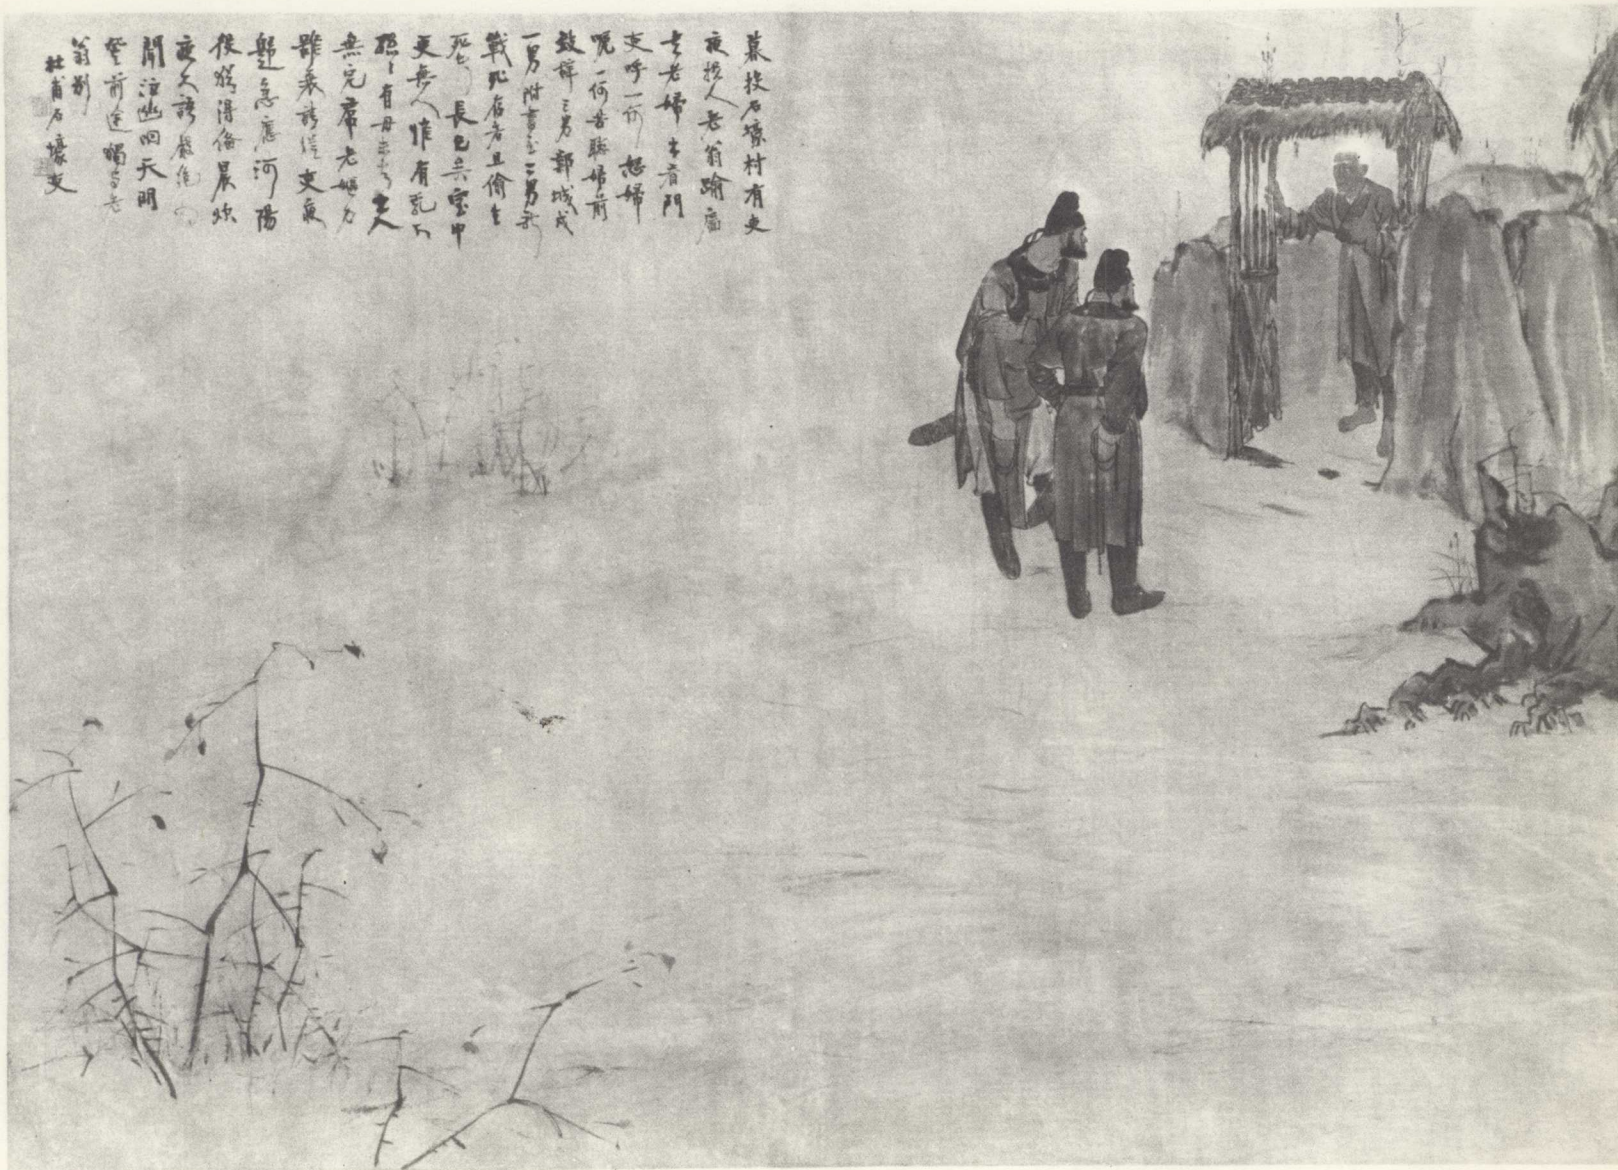 暮投石壕村有吏
夜捉人老翁踰牆
走老婦出看門
吏呼一何怒婦
啼一何苦聽婦前
致辭三男鄴城戍
一男附書至二男新
戰死存者且偷生
死者長已矣室中
更無人惟有乳下
孫〻有母未去出入
無完帬老嫗力
雖衰請從吏夜
歸急應河陽
役猶得備晨炊
夜久語聲絕如
聞泣幽咽天明
登前途獨與老
翁別
杜甫石壕吏